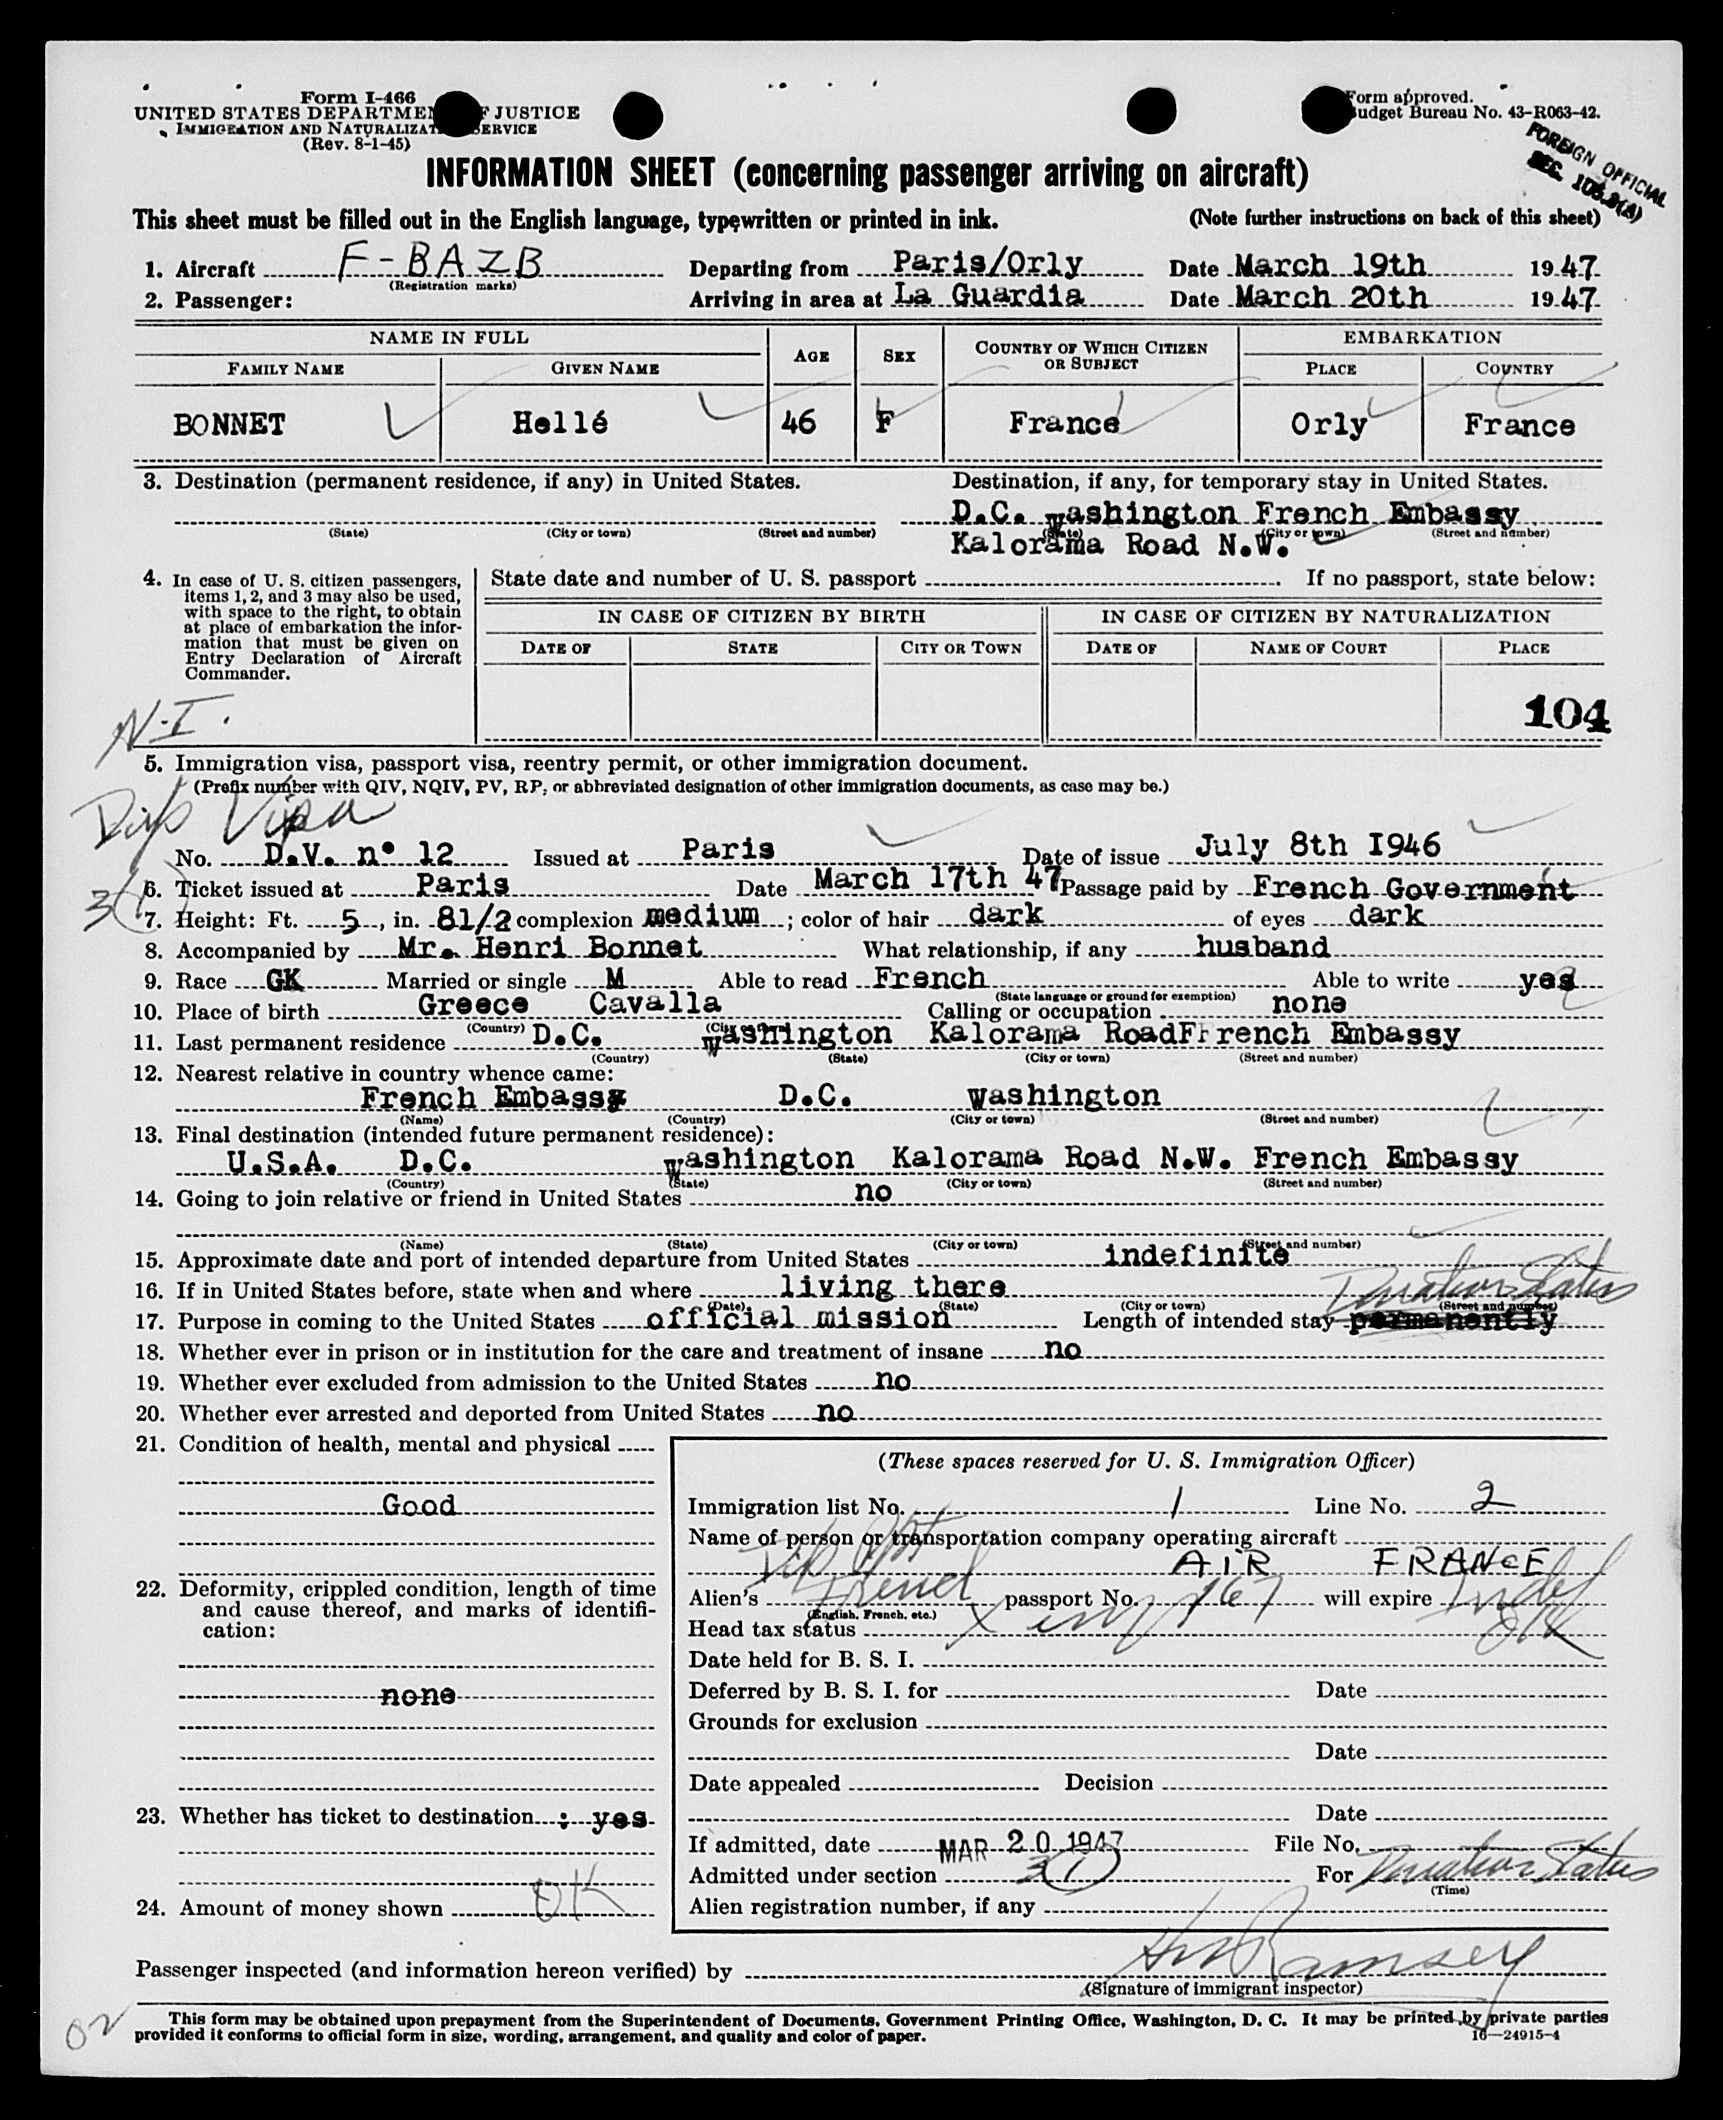 Form I-466
UNITED STATES DEPARTMEN F JUSTICE
IMMIGRATION AND NATURALIZAT SERVICE
(Rev. 8-1-45)
Form approved.
Budget Bureau No. 43-R063-42.
FOREIGN OFFICIAL
SEC.
INFORMATION SHEET (concerning passenger arriving on aircraft)
This sheet must be filled out in the English language, typewritten or printed in ink. (Note further instructions on back of this sheet)
1. Aircraft F-BAZB Departing from Paris/Orly Date March 19th 1947
(Registration marks)
2. Passenger: Arriving in area at La Guardia Date March 20th 1947
NAME IN FULL AGE SEX COUNTRY OF WHICH CITIZEN OR SUBJECT EMBARKATION
FAMILY NAME GIVEN NAME PLACE COUNTRY
BONNET Hellé 46 F France Orly France
3. Destination (permanent residence, if any) in United States. Destination, if any, for temporary stay in United States.
D.C. Washington French Embassy
(State) (City or town) (Street and number) (State) (City or town) (Street and number)
Kalorama Road N.W.
4. In case of U. S. citizen passengers, items 1, 2, and 3 may also be used, with space to the right, to obtain at place of embarkation the information that must be given on Entry Declaration of Aircraft Commander.
State date and number of U. S. passport If no passport, state below:
IN CASE OF CITIZEN BY BIRTH IN CASE OF CITIZEN BY NATURALIZATION
DATE OF STATE CITY OR TOWN DATE OF NAME OF COURT PLACE
104
N.I.
5. Immigration visa, passport visa, reentry permit, or other immigration document.
(Prefix number with QIV, NQIV, PV, RP, or abbreviated designation of other immigration documents, as case may be.)
Dip Visa
No. D.V. n° 12 Issued at Paris Date of issue July 8th 1946
3(1)
6. Ticket issued at Paris Date March 17th 47 Passage paid by French Government
7. Height: Ft. 5, in. 81/2 complexion medium; color of hair dark of eyes dark
8. Accompanied by Mr. Henri Bonnet What relationship, if any husband
9. Race GK Married or single M Able to read French Able to write yes
(State language or ground for exemption)
10. Place of birth Greece Cavalla Calling or occupation none
(Country) (City or town)
11. Last permanent residence D.C. Washington Kalorama RoadFFrench Embassy
(Country) (State) (City or town) (Street and number)
12. Nearest relative in country whence came:
French Embassy D.C. Washington
(Name) (Country) (City or town) (Street and number)
13. Final destination (intended future permanent residence):
U.S.A. D.C. Washington Kalorama Road N.W. French Embassy
(Country) (State) (City or town) (Street and number)
14. Going to join relative or friend in United States no
(Name) (State) (City or town) (Street and number)
15. Approximate date and port of intended departure from United States indefinite
16. If in United States before, state when and where living there
(Date) (State) (City or town) (Street and number)
Duration Status
17. Purpose in coming to the United States official mission Length of intended stay permanently
18. Whether ever in prison or in institution for the care and treatment of insane no
19. Whether ever excluded from admission to the United States no
20. Whether ever arrested and deported from United States no
21. Condition of health, mental and physical
Good
22. Deformity, crippled condition, length of time and cause thereof, and marks of identification:
none
23. Whether has ticket to destination : yes
24. Amount of money shown OK
(These spaces reserved for U. S. Immigration Officer)
Immigration list No. 1 Line No. 2
Name of person or transportation company operating aircraft
AIR FRANCE
Dip
Alien's French passport No. 167 will expire Indef
(English, French, etc.)
Head tax status OK
Date held for B. S. I.
Deferred by B. S. I. for Date
Grounds for exclusion
Date
Date appealed Decision
Date
If admitted, date MAR 20 1947 File No.
Admitted under section 3(1) For Duration Status
(Time)
Alien registration number, if any
Passenger inspected (and information hereon verified) by Ramsey
(Signature of immigrant inspector)
This form may be obtained upon prepayment from the Superintendent of Documents, Government Printing Office, Washington, D. C. It may be printed by private parties
provided it conforms to official form in size, wording, arrangement, and quality and color of paper.
16—24915-4